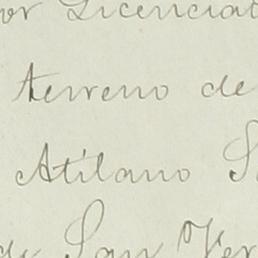 or Licenciad
terreno de
Atilano S
de San Ver